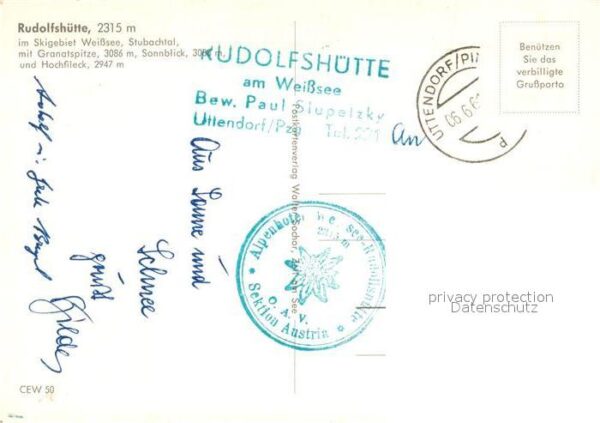 Rudolfshütte, 2315 m
im Skigebiet Weißsee, Stubachtal,
mit Granatspitze, 3086 m, Sonnblick,
und Hochfileck, 2947 m
RUDOLFSHÜTTE
am Weißsee
Bew. Paul Slupetzky
Uttendorf/Pzg. Tel. 221
An
UTTENDORF/PI
06.6.6
P
Benützen
Sie das
verbilligte
Grußporto
Aus Sonne und
Schnee
grüßt
Hilde
Postkartenverlag
Zell am See
Alpenhotel Weißsee-Rudolfshütte
2315 m
O. A. V.
Sektion Austria
privacy protection
Datenschutz
CEW 50